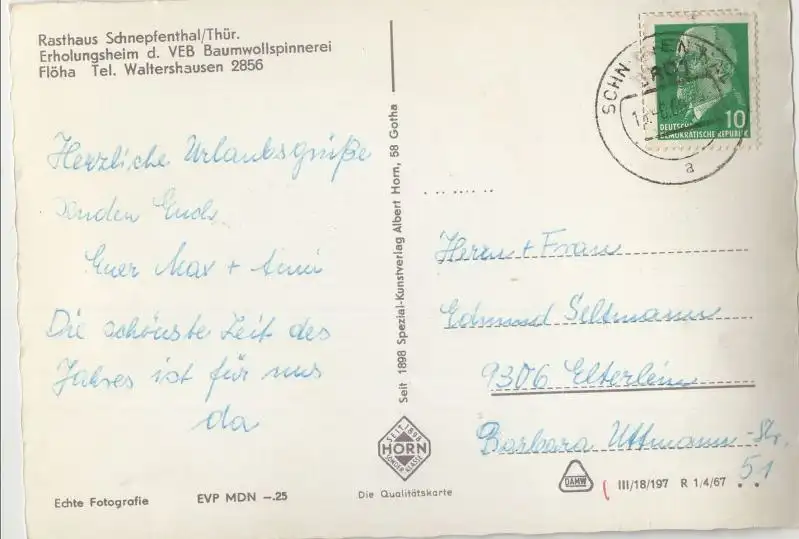 Rasthaus Schnepfenthal/Thür.
Erholungsheim d. VEB Baumwollspinnerei
Flöha Tel. Waltershausen 2856
Herzliche Urlaubsgrüße
senden Euch
Euer Max + Anni
Die schönste Zeit des
Jahres ist für uns
da
Echte Fotografie EVP MDN –.25
Seit 1898 Spezial-Kunstverlag Albert Horn, 58 Gotha
SEIT 1898
HORN
SONDER KLASSE
Die Qualitätskarte
SCHN
a
10
DEUTSCHE
DEMOKRATISCHE REPUBLIK
Herrn + Frau
Edmund Seltmann
9306 Elterlein
Barbara Uttmann-Str.
51
DAMW
III/18/197 R 1/4/67